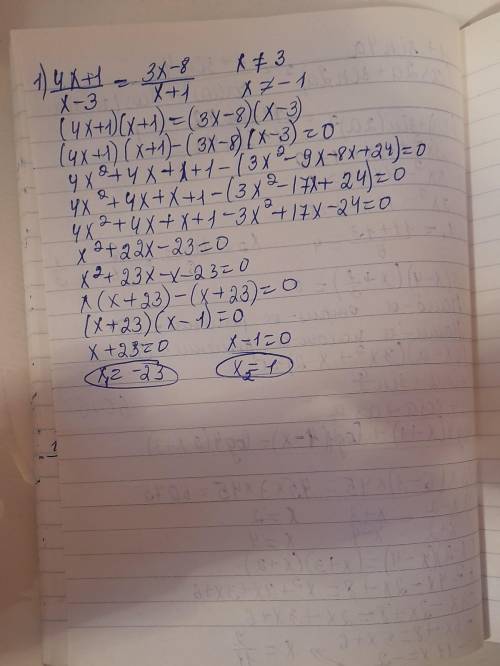 1) (4x+1)/(x-3) = (3x-8)/(x+1) x ≠ 3
x ≠ -1
(4x+1)(x+1)=(3x-8)(x-3)
(4x+1)(x+1)-(3x-8)(x-3)=0
4x²+4x+x+1-(3x²-9x-8x+24)=0
4x²+4x+x+1-(3x²-17x+24)=0
4x²+4x+x+1-3x²+17x-24=0
x²+22x-23=0
x²+23x-x-23=0
x(x+23)-(x+23)=0
(x+23)(x-1)=0
x+23=0 x-1=0
x₁=-23 x₂=1